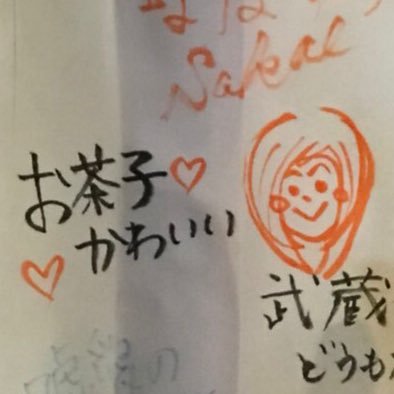 Sakae
お茶子♡
♡かわいい
武蔵
どうも